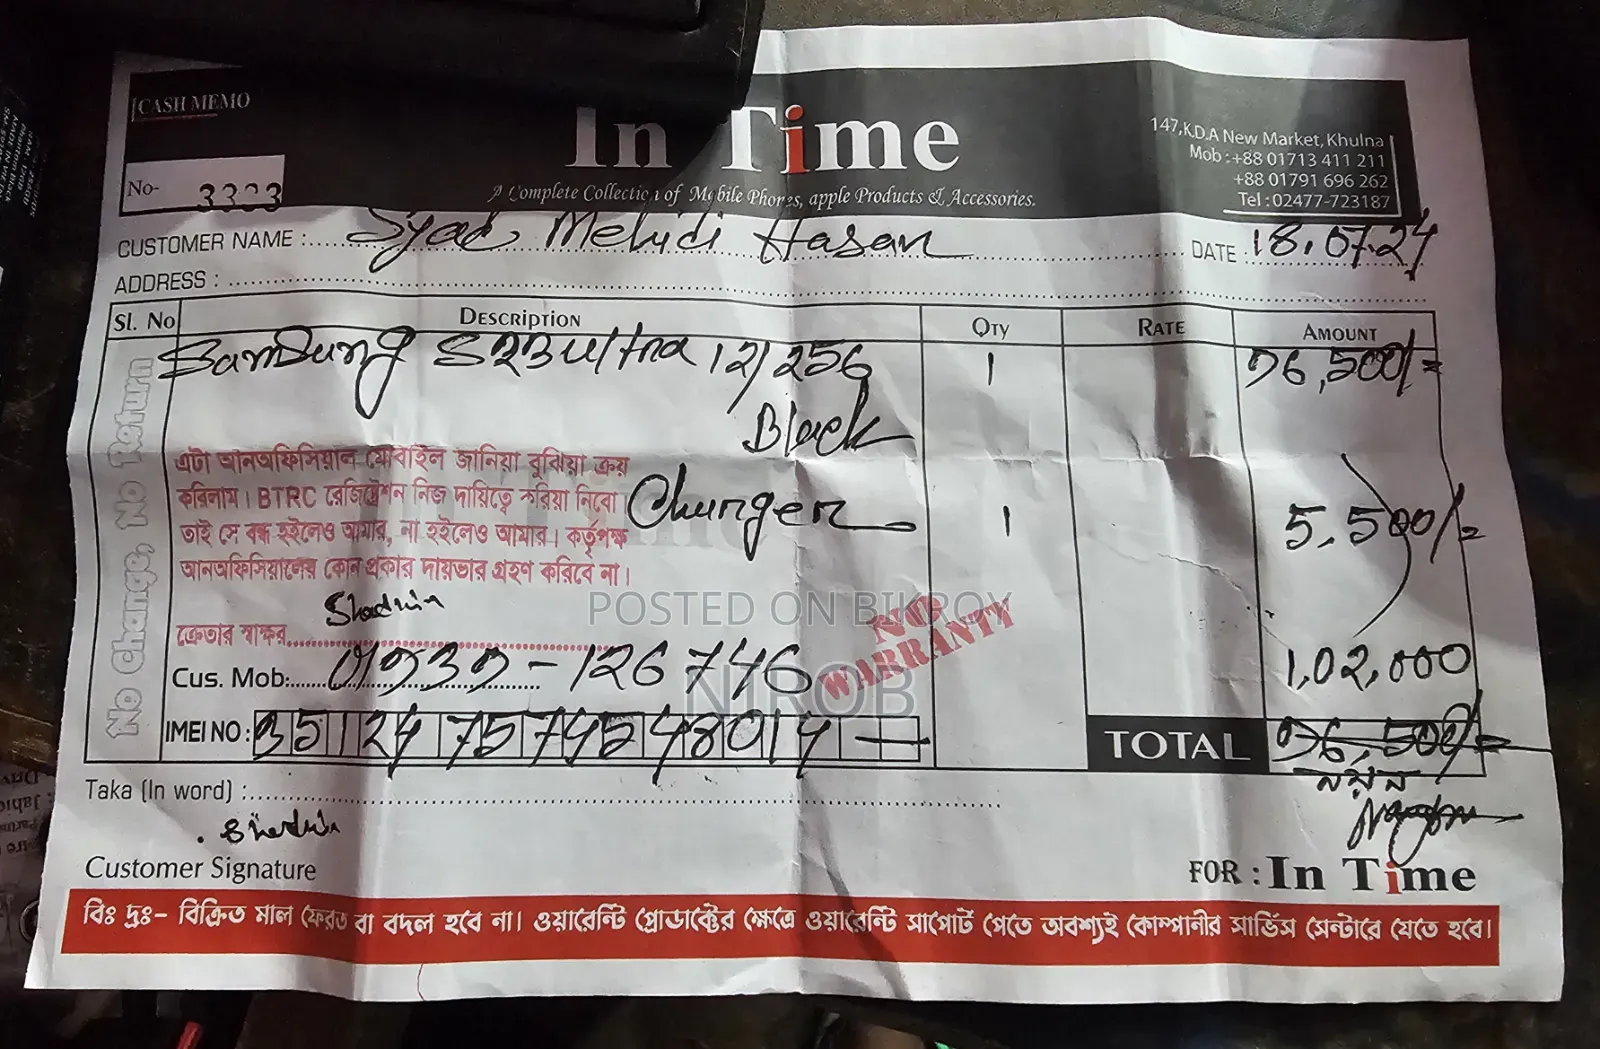 CASH MEMO
In Time
A Complete Collection of Mobile Phones, apple Products & Accessories.
147, K.D.A New Market, Khulna
Mob : +88 01713 411 211
+88 01791 696 262
Tel : 02477-723187
No- 3393
CUSTOMER NAME : Syad Mehidi Hasan DATE : 18.07.24
ADDRESS :
Sl. No DESCRIPTION QTY RATE AMOUNT
Samsung S23 Ultra 12/256 1 96,500/=
Black
No Change, No Return
এটা আনঅফিসিয়াল মোবাইল জানিয়া বুঝিয়া ক্রয়
করিলাম। BTRC রেজিষ্ট্রেশন নিজ দায়িত্বে করিয়া নিবো
তাই সে বন্ধ হইলেও আমার, না হইলেও আমার। কর্তৃপক্ষ
আনঅফিসিয়ালের কোন প্রকার দায়ভার গ্রহণ করিবে না।
Churger 1 5,500/=
POSTED ON BIKROY
NO
WARRANTY
ক্রেতার স্বাক্ষর
1,02,000
Cus. Mob: 01939-126746
NIROB
IMEI NO : 351247574548014
TOTAL 96,500/=
Taka (In word) :
নয়ন
Customer Signature
FOR : In Time
বিঃ দ্রঃ- বিক্রিত মাল ফেরত বা বদল হবে না। ওয়ারেন্টি প্রোডাক্টের ক্ষেত্রে ওয়ারেন্টি সাপোর্ট পেতে অবশ্যই কোম্পানীর সার্ভিস সেন্টারে যেতে হবে।